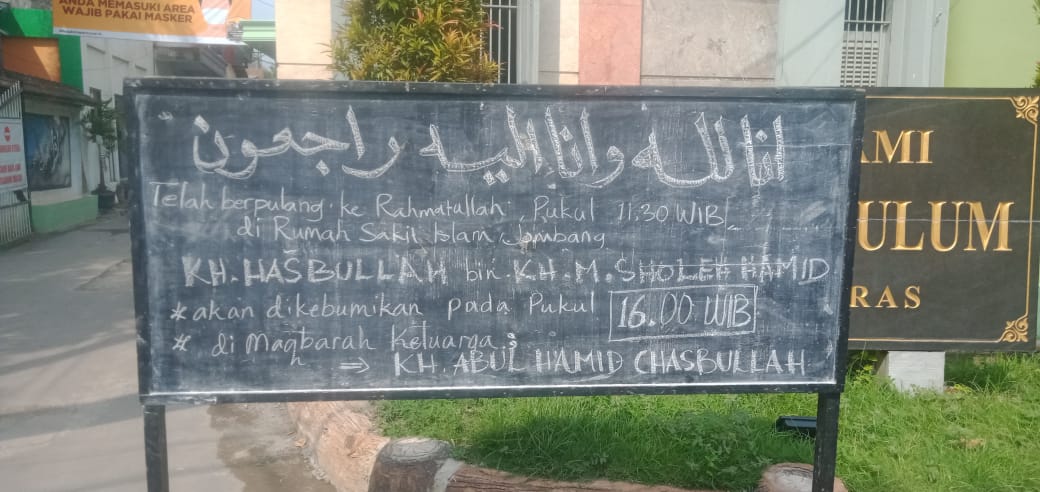 ANDA MEMASUKI AREA
WAJIB PAKAI MASKER
انا لله وانا اليه راجعون
Telah berpulang ke Rahmatullah, Pukul 11.30 WIB
di Rumah Sakit Islam Jombang
KH. HASBULLAH bin KH. M. SHOLEH HAMID
* akan dikebumikan pada Pukul 16.00 WIB
* di Maqbarah Keluarga :
h ⇒ KH. ABUL HAMID CHASBULLAH
AMI
ULUM
RAS